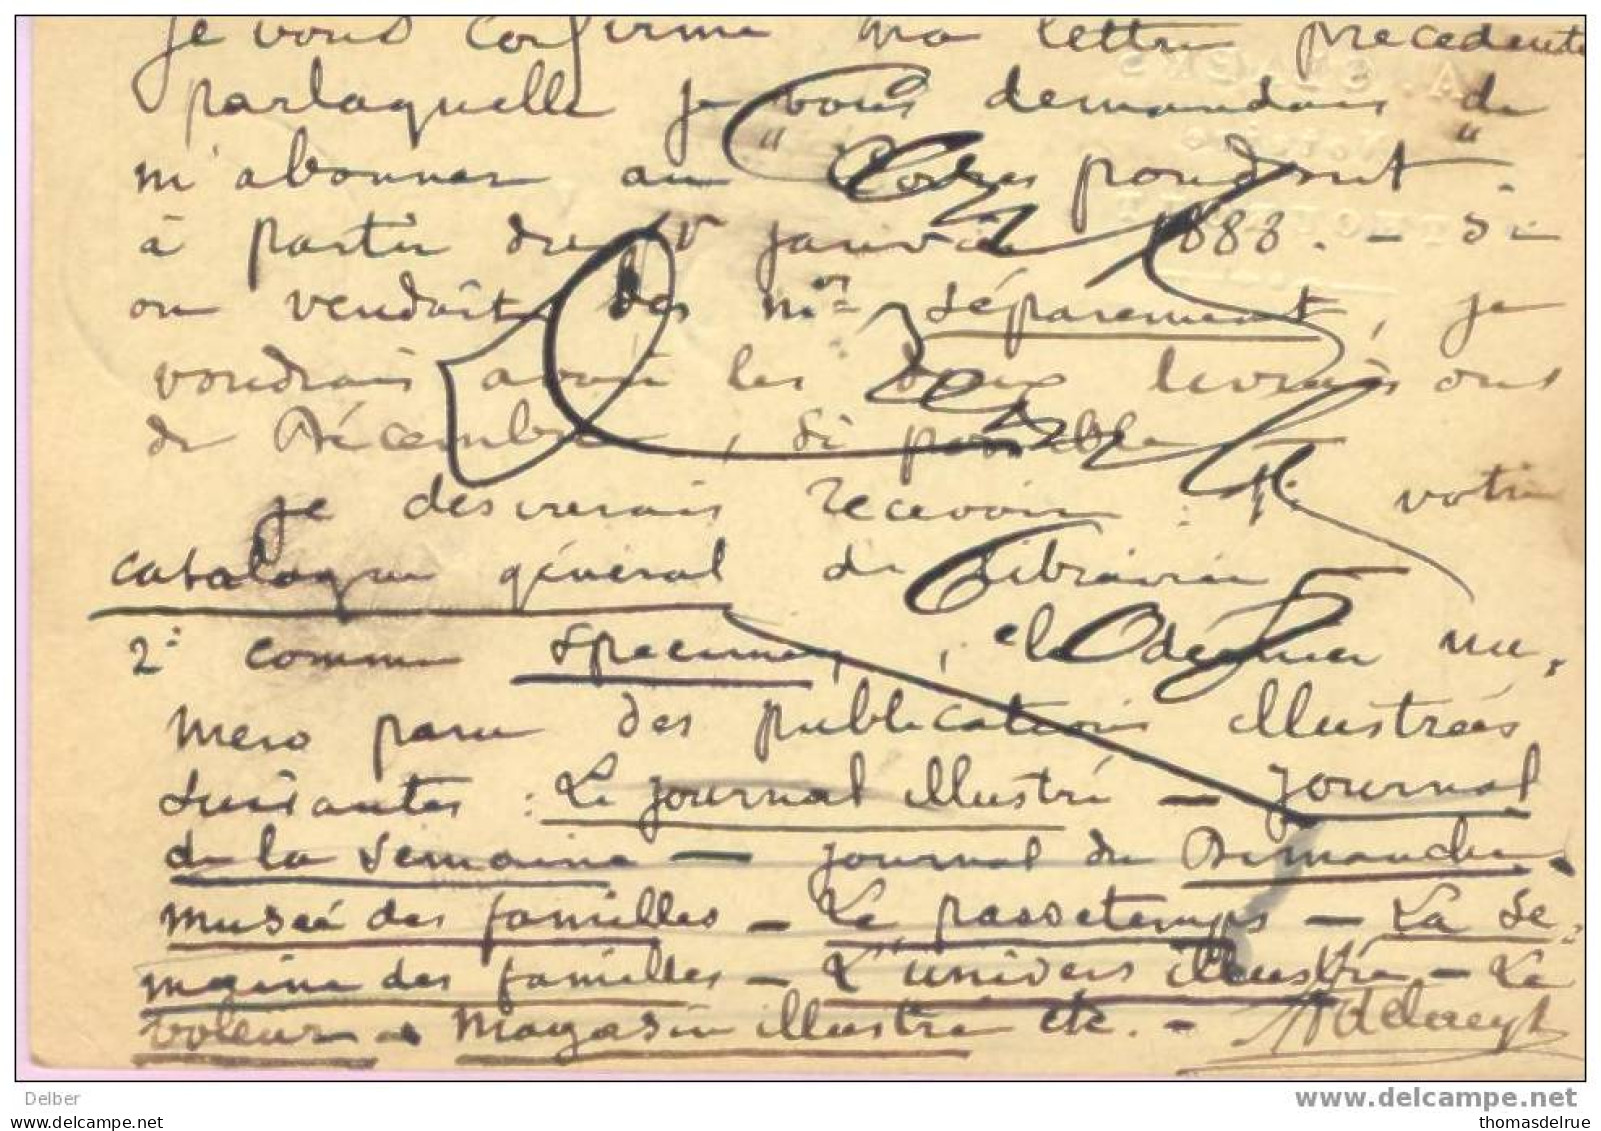 je vous confirme ma lettre precedente
par laquelle je vous demandais de
m'abonner au "Correspondant".
à partir du 1r janvier 1888. - Si
on vendait des nos séparement, je
voudrais avoir les deux livraisons
de Décembre, si possible
je desirerais recevoir : 1º votre
catalogue général de librairie
2º comme specimen, le dernier nu-
mero paru des publications illustrées
suivantes : Le journal illustré — journal
de la semaine — journal du Dimanche.
musée des familles — Le passetemps — La Se-
maine des familles — L'univers illustré — Le
voleur — Magasin illustré etc. -
Delber
www.delcampe.net
It's my own picture
thomasdelrue